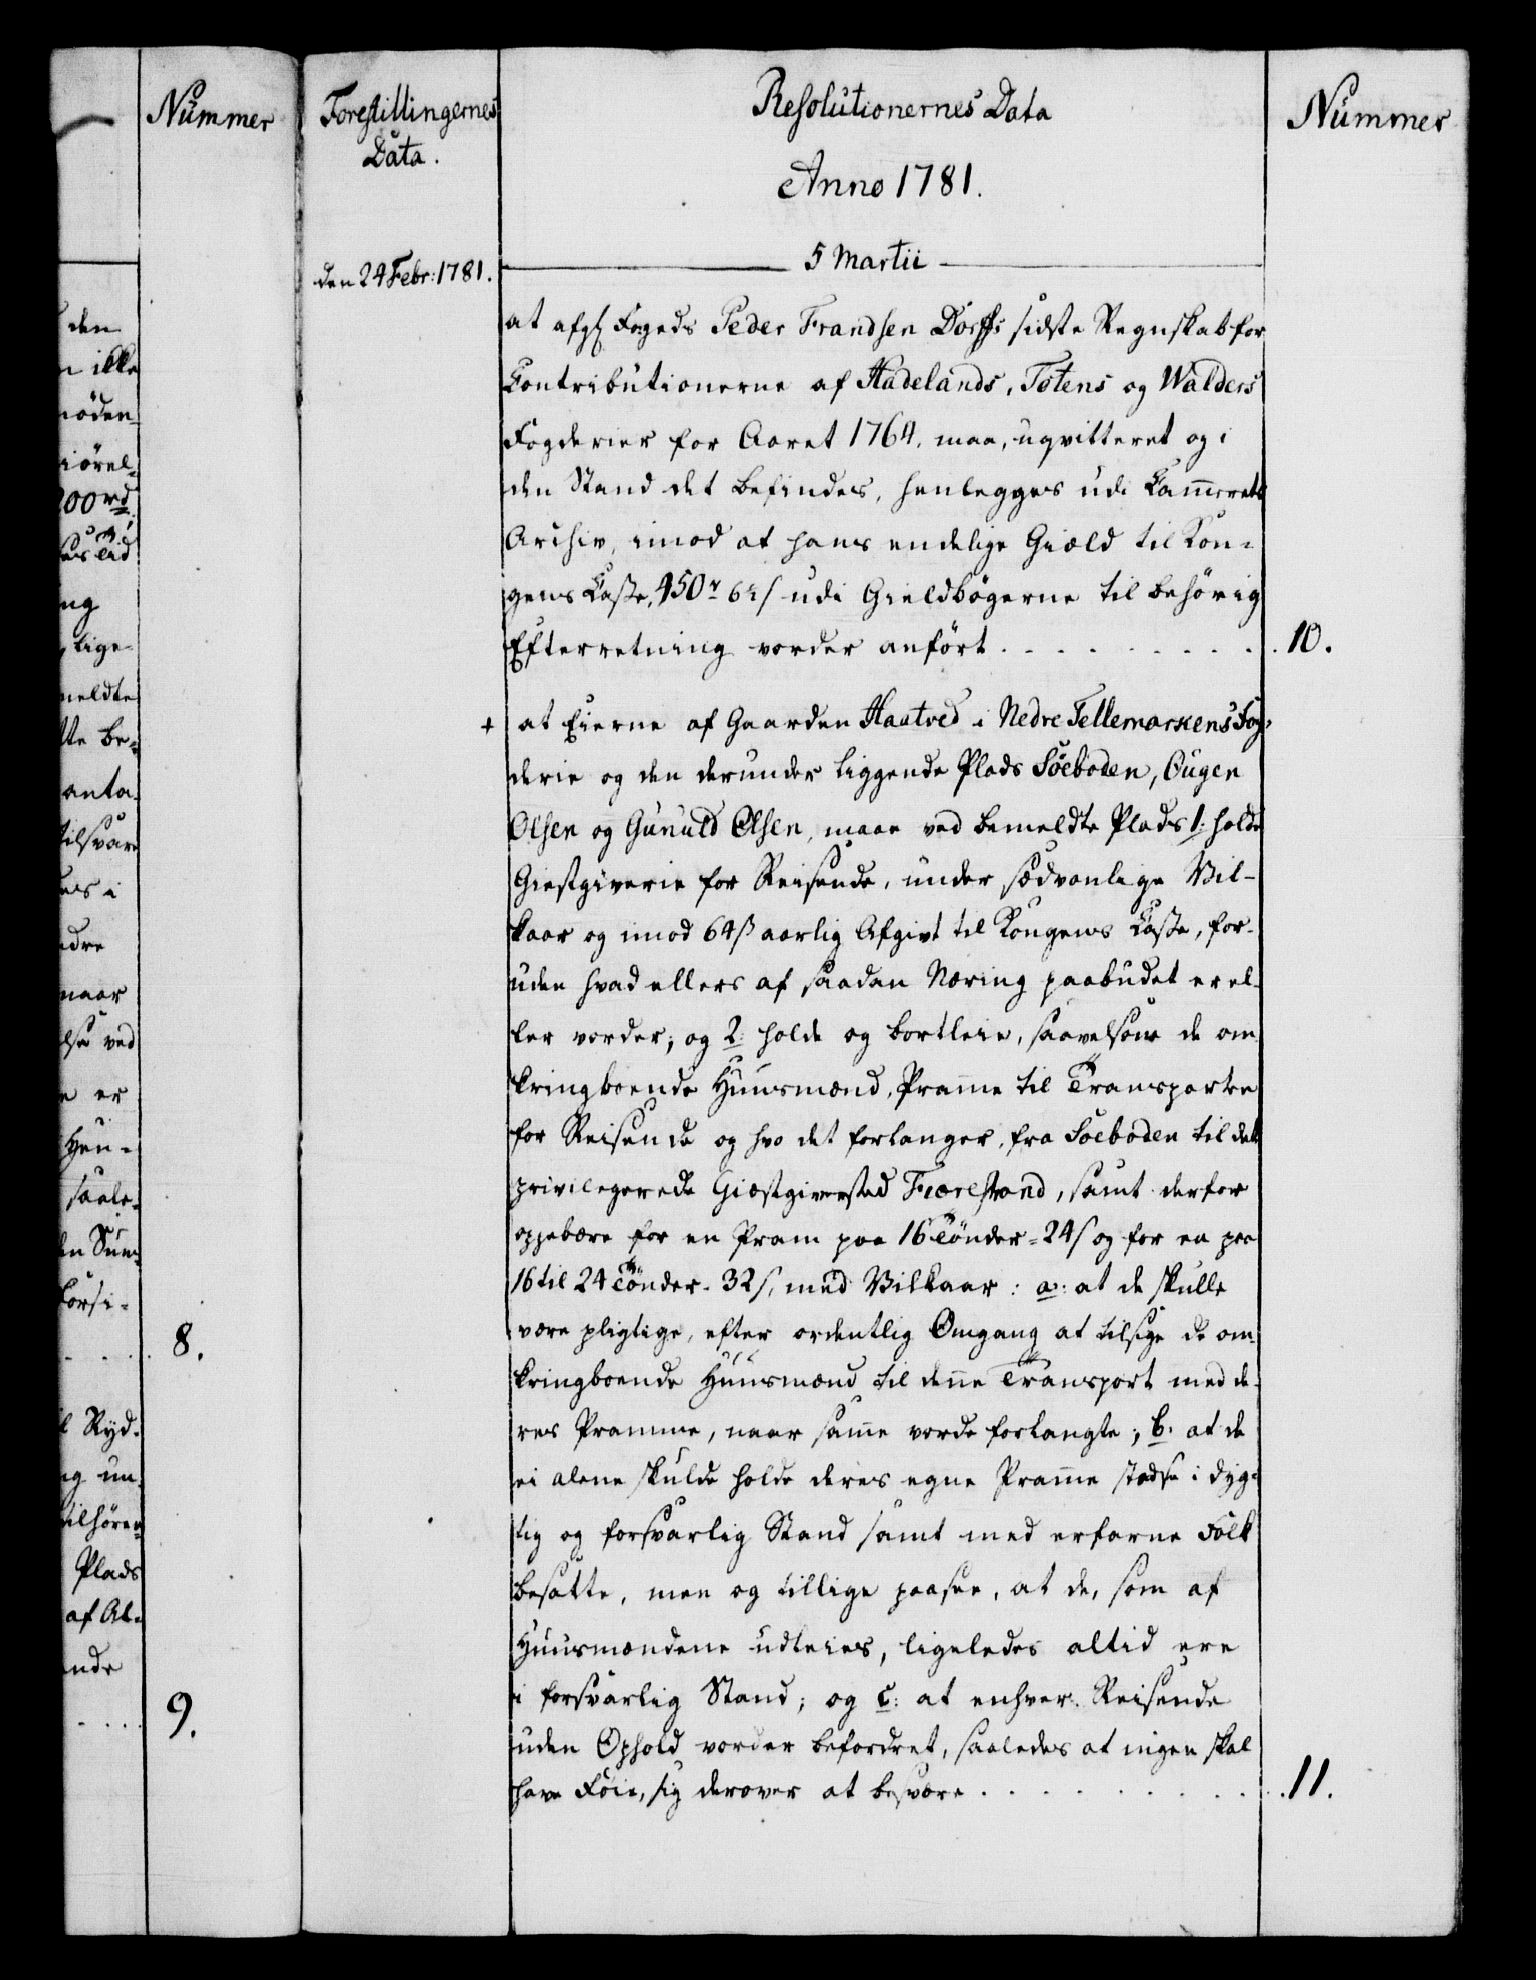 Nummer
den
ikke
nöden-
giörel-
200 rd
eus tid
ng
lige-
meldte
tte be-
anta-
tilsvare
es i
edre
naar
else ved
e er
Hen-
saale-
en Sum-
forsi-
8.
l Ryd-
ng un-
tilhören-
Plads
af Al-
ende
9.
Forestillingernes
Data.
Resolutionernes Data
Nummer
Anno 1781.
5 Martii
den 24 Febr: 1781.
at afg. Fogeds Peder Frandsen Dorffs sidste Regnskab for
Contributionerne af Hadelands, Totens og Walders
Fogderier for Aaret 1764. maa, uqvitteret og i
den Stand det befindes, henlegges udi Cammerets
Archiv, imod at hans endelige Giæld til Kon-
gens Casse, 450 r 62 s udi Gieldbögerne til behörig
Efterretning vorder anfört . . . . . . . . . 10.
+ at Eierne af Gaarden Haatved i Nedre Tellemarkens Fog-
derie og den derunder liggende Plads Söeboden, Ougen
Olsen og Gunuld Olsen, maae ved bemeldte Plads 1: holde
Giestgiverie for Reisende, under sædvanlige Vil-
kaar og imod 64 s aarlig Afgivt til Kongens Casse, for-
uden hvad ellers af saadan Næring paabudet er el-
ler vorder; og 2: holde og bortleie, saavelsom de om
kringboende Huusmænd, Pramme til Transporten
for Reisende og hvo det forlanger, fra Söeboden til det
privilegerede Giæstgiversted Fiærestrand, samt derfor
oppebære for en Pram paa 16 Tönder - 24 s og for en paa
16 til 24 Tönder - 32 s, med Vilkaar: a: at de skulle
være pligtige, efter ordentlig Omgang at tilsige de om-
kringboende Huusmænd til denne Transport med de-
res Pramme, naar samme vorde forlangte; b. at de
ei alene skulde holde deres egne Pramme stedse i dyg-
tig og forsvarlig Stand samt med erfarne Folk
besatte, men og tillige paasee, at de, som af
Huusmændene udleies, ligeledes altid ere
i forsvarlig Stand; og c: at enhver Reisende
uden Ophold vorder befordret, saaledes at ingen skal
have Föie, sig derover at besvære . . . . . . . . . 11.